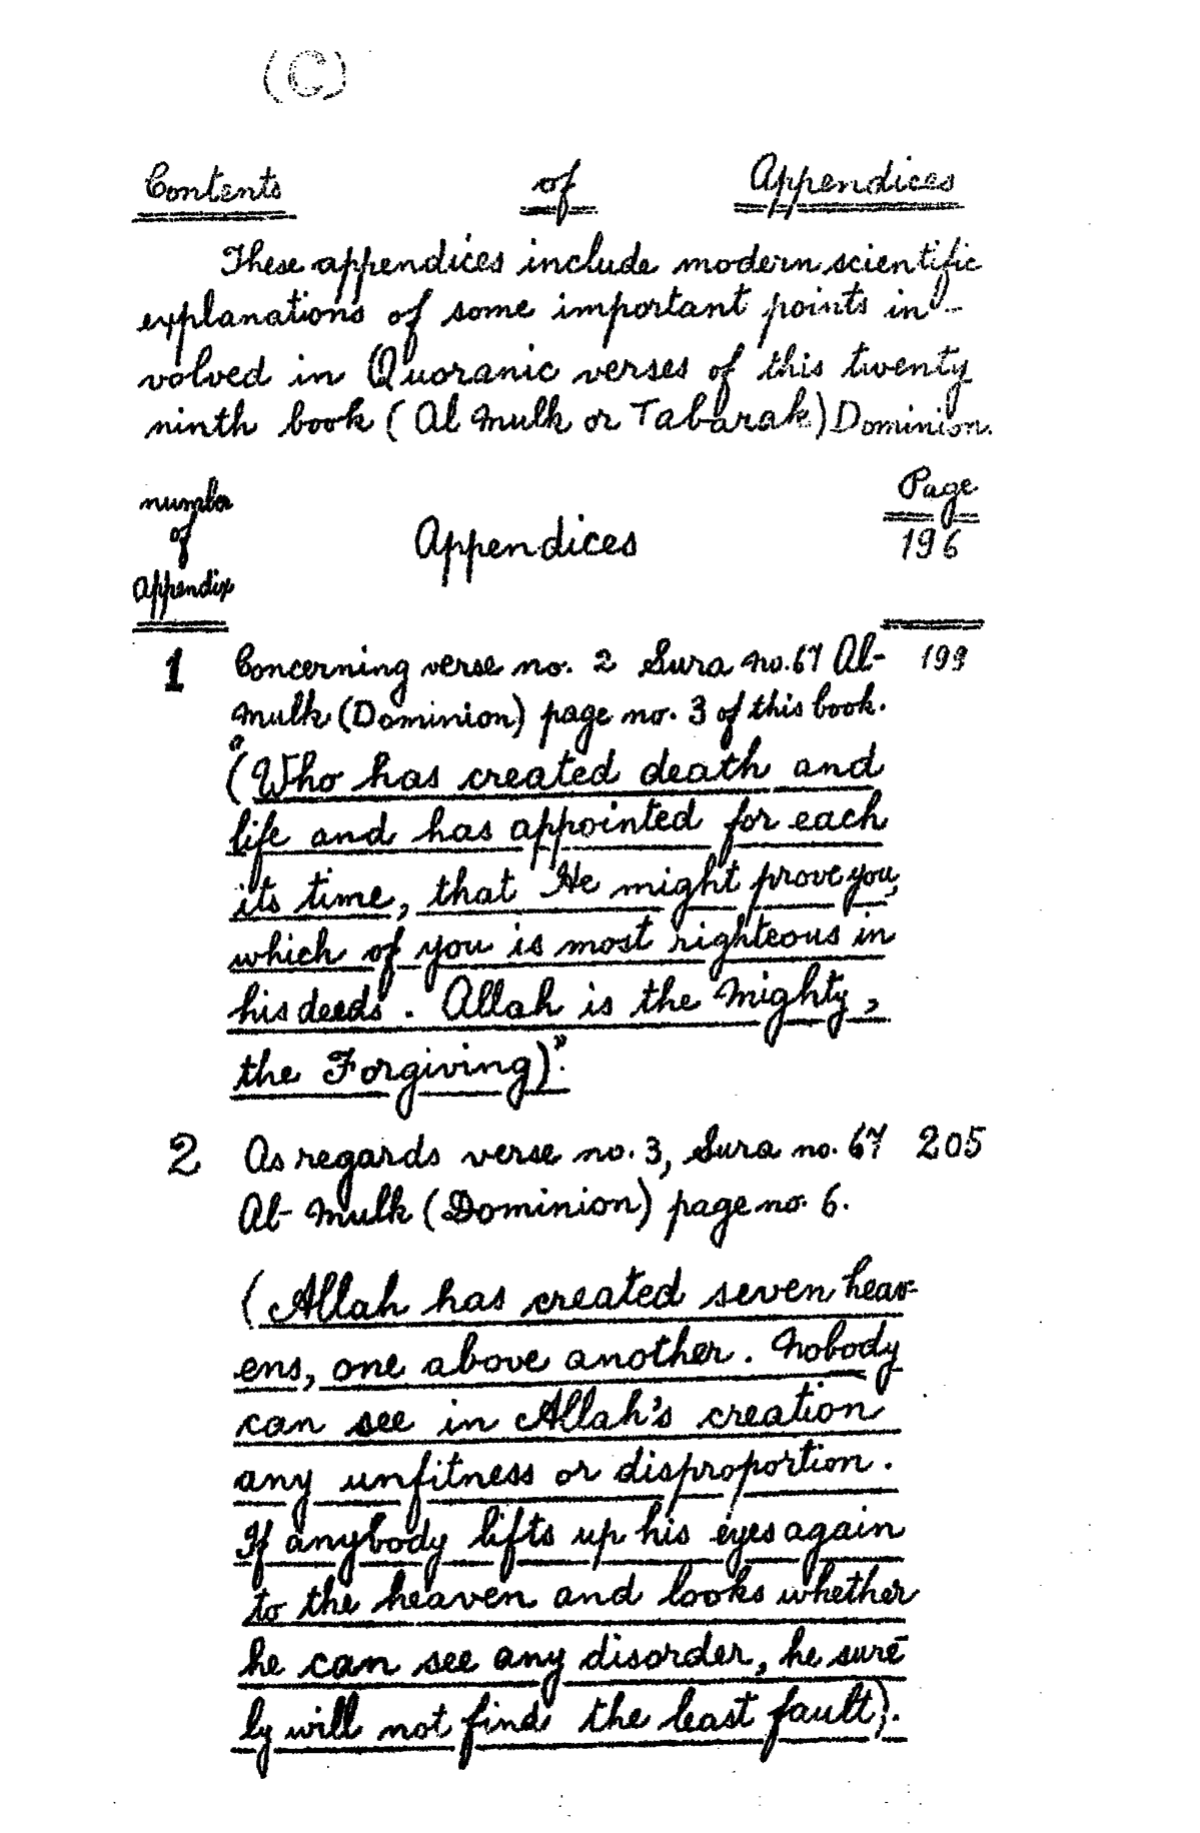 (C)
Contents of Appendices
These appendices include modern scientific
explanations of some important points in-
volved in Quoranic verses of this twenty
ninth book (Al Mulk or Tabarak) Dominion.
number
of
Appendix
Appendices
Page
196
1 Concerning verse no. 2 Sura no. 67 Al- 199
Mulk (Dominion) page no. 3 of this book.
"(Who has created death and
life and has appointed for each
its time, that He might prove you,
which of you is most righteous in
his deeds. Allah is the Mighty,
the Forgiving)".
2 As regards verse no. 3, Sura no. 67 205
Al- Mulk (Dominion) page no. 6.
(Allah has created seven heav-
ens, one above another. Nobody
can see in Allah's creation
any unfitness or disproportion.
If anybody lifts up his eyes again
to the heaven and looks whether
he can see any disorder, he sure-
ly will not find the least fault).